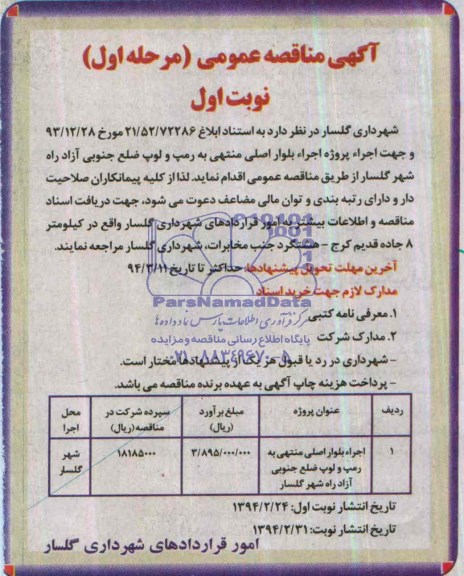 آگهی مناقصه عمومی (مرحله اول)
نوبت اول
شهرداری گلسار در نظر دارد به استناد ابلاغ ۲۱/۵۲/۷۲۲۸۶ مورخ ۹۳/۱۲/۲۸
و جهت اجراء پروژه اجراء بلوار اصلی منتهی به رمپ و لوپ ضلع جنوبی آزاد راه
شهر گلسار از طریق مناقصه عمومی اقدام نماید. لذا از کلیه پیمانکاران صلاحیت
دار و دارای رتبه بندی و توان مالی مضاعف دعوت می شود، جهت دریافت اسناد
مناقصه و اطلاعات بیشتر به امور قراردادهای شهرداری گلسار واقع در کیلومتر
۸ جاده قدیم کرج - هشتگرد جنب مخابرات، شهرداری گلسار مراجعه نمایند.
آخرین مهلت تحویل پیشنهادها: حداکثر تا تاریخ ۹۴/۳/۱۱
مدارک لازم جهت خرید اسناد:
ParsNamadData
۱. معرفی نامه کتبی
مرکز فرآوری اطلاعات پارس نماد داده ها
۲. مدارک شرکت
پایگاه اطلاع رسانی مناقصه و مزایده
- شهرداری در رد یا قبول هر یک از پیشنهادها مختار است.
۰۲۱-۸۸۳۴۹۶۷۰-۵
- پرداخت هزینه چاپ آگهی به عهده برنده مناقصه می باشد.
ردیف عنوان پروژه مبلغ برآورد (ریال) سپرده شرکت در مناقصه (ریال) محل اجرا
۱ اجراء بلوار اصلی منتهی به رمپ و لوپ ضلع جنوبی آزاد راه شهر گلسار ۳/۸۹۵/۰۰۰/۰۰۰ ۱۸۱۸۵۰۰۰ شهر گلسار
تاریخ انتشار نوبت اول: ۱۳۹۴/۲/۲۴
تاریخ انتشار نوبت: ۱۳۹۴/۲/۳۱
امور قراردادهای شهرداری گلسار